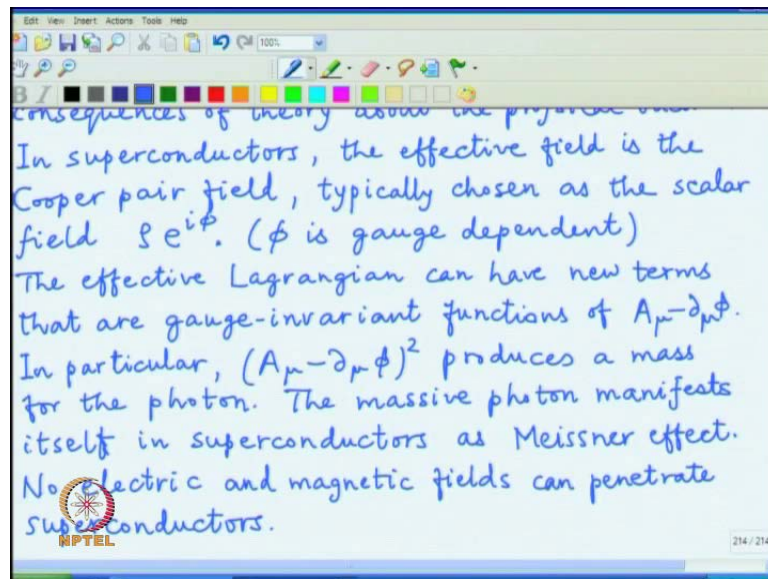 Edit View Insert Actions Tools Help
100%
B I
consequences of theory about the physical
In superconductors, the effective field is the
Cooper pair field, typically chosen as the scalar
field ρe^{iϕ}. (ϕ is gauge dependent)
The effective Lagrangian can have new terms
that are gauge-invariant functions of A_μ-∂_μϕ.
In particular, (A_μ-∂_μϕ)² produces a mass
for the photon. The massive photon manifests
itself in superconductors as Meissner effect.
No electric and magnetic fields can penetrate
superconductors.
NPTEL
214 / 214